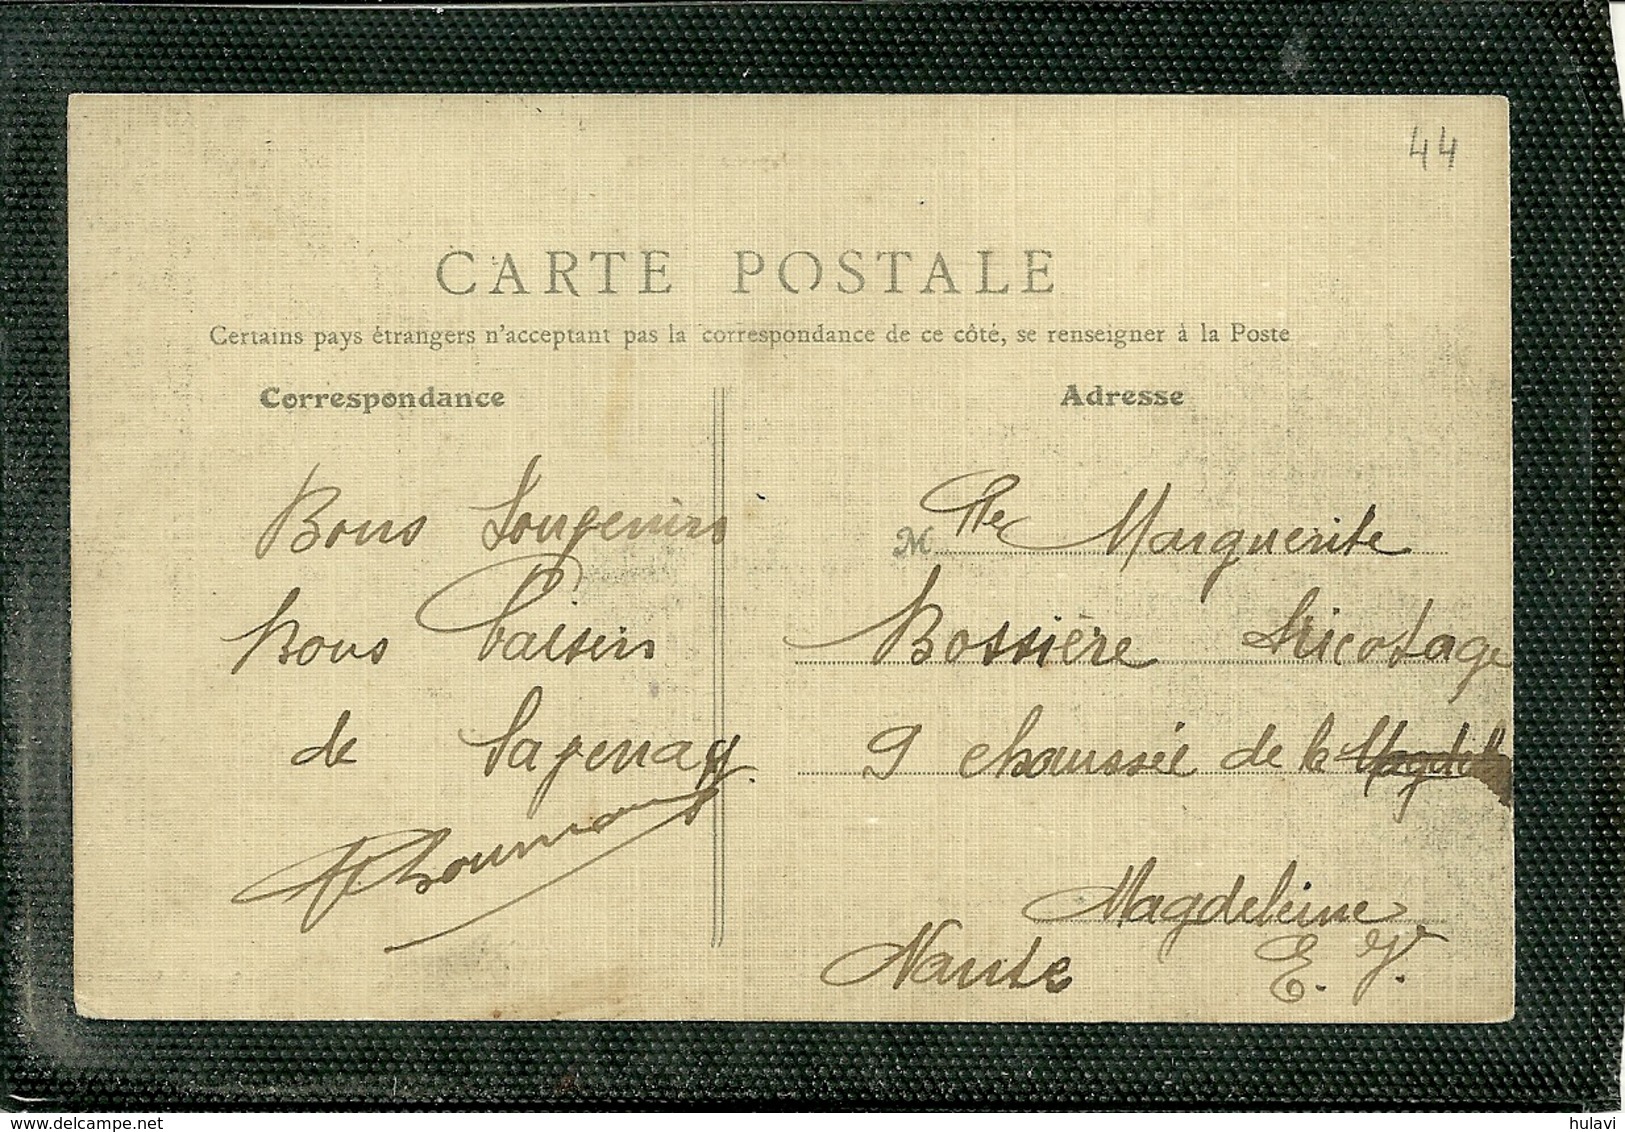 44
CARTE POSTALE
Certains pays étrangers n'acceptant pas la correspondance de ce côté, se renseigner à la Poste
Correspondance
Adresse
Bons Souvenirs
bons Baisers
de
M lle Marguerite
Bossière tricotage
9 chaussée de la
Magdeleine
Nante E. V.
hulavi